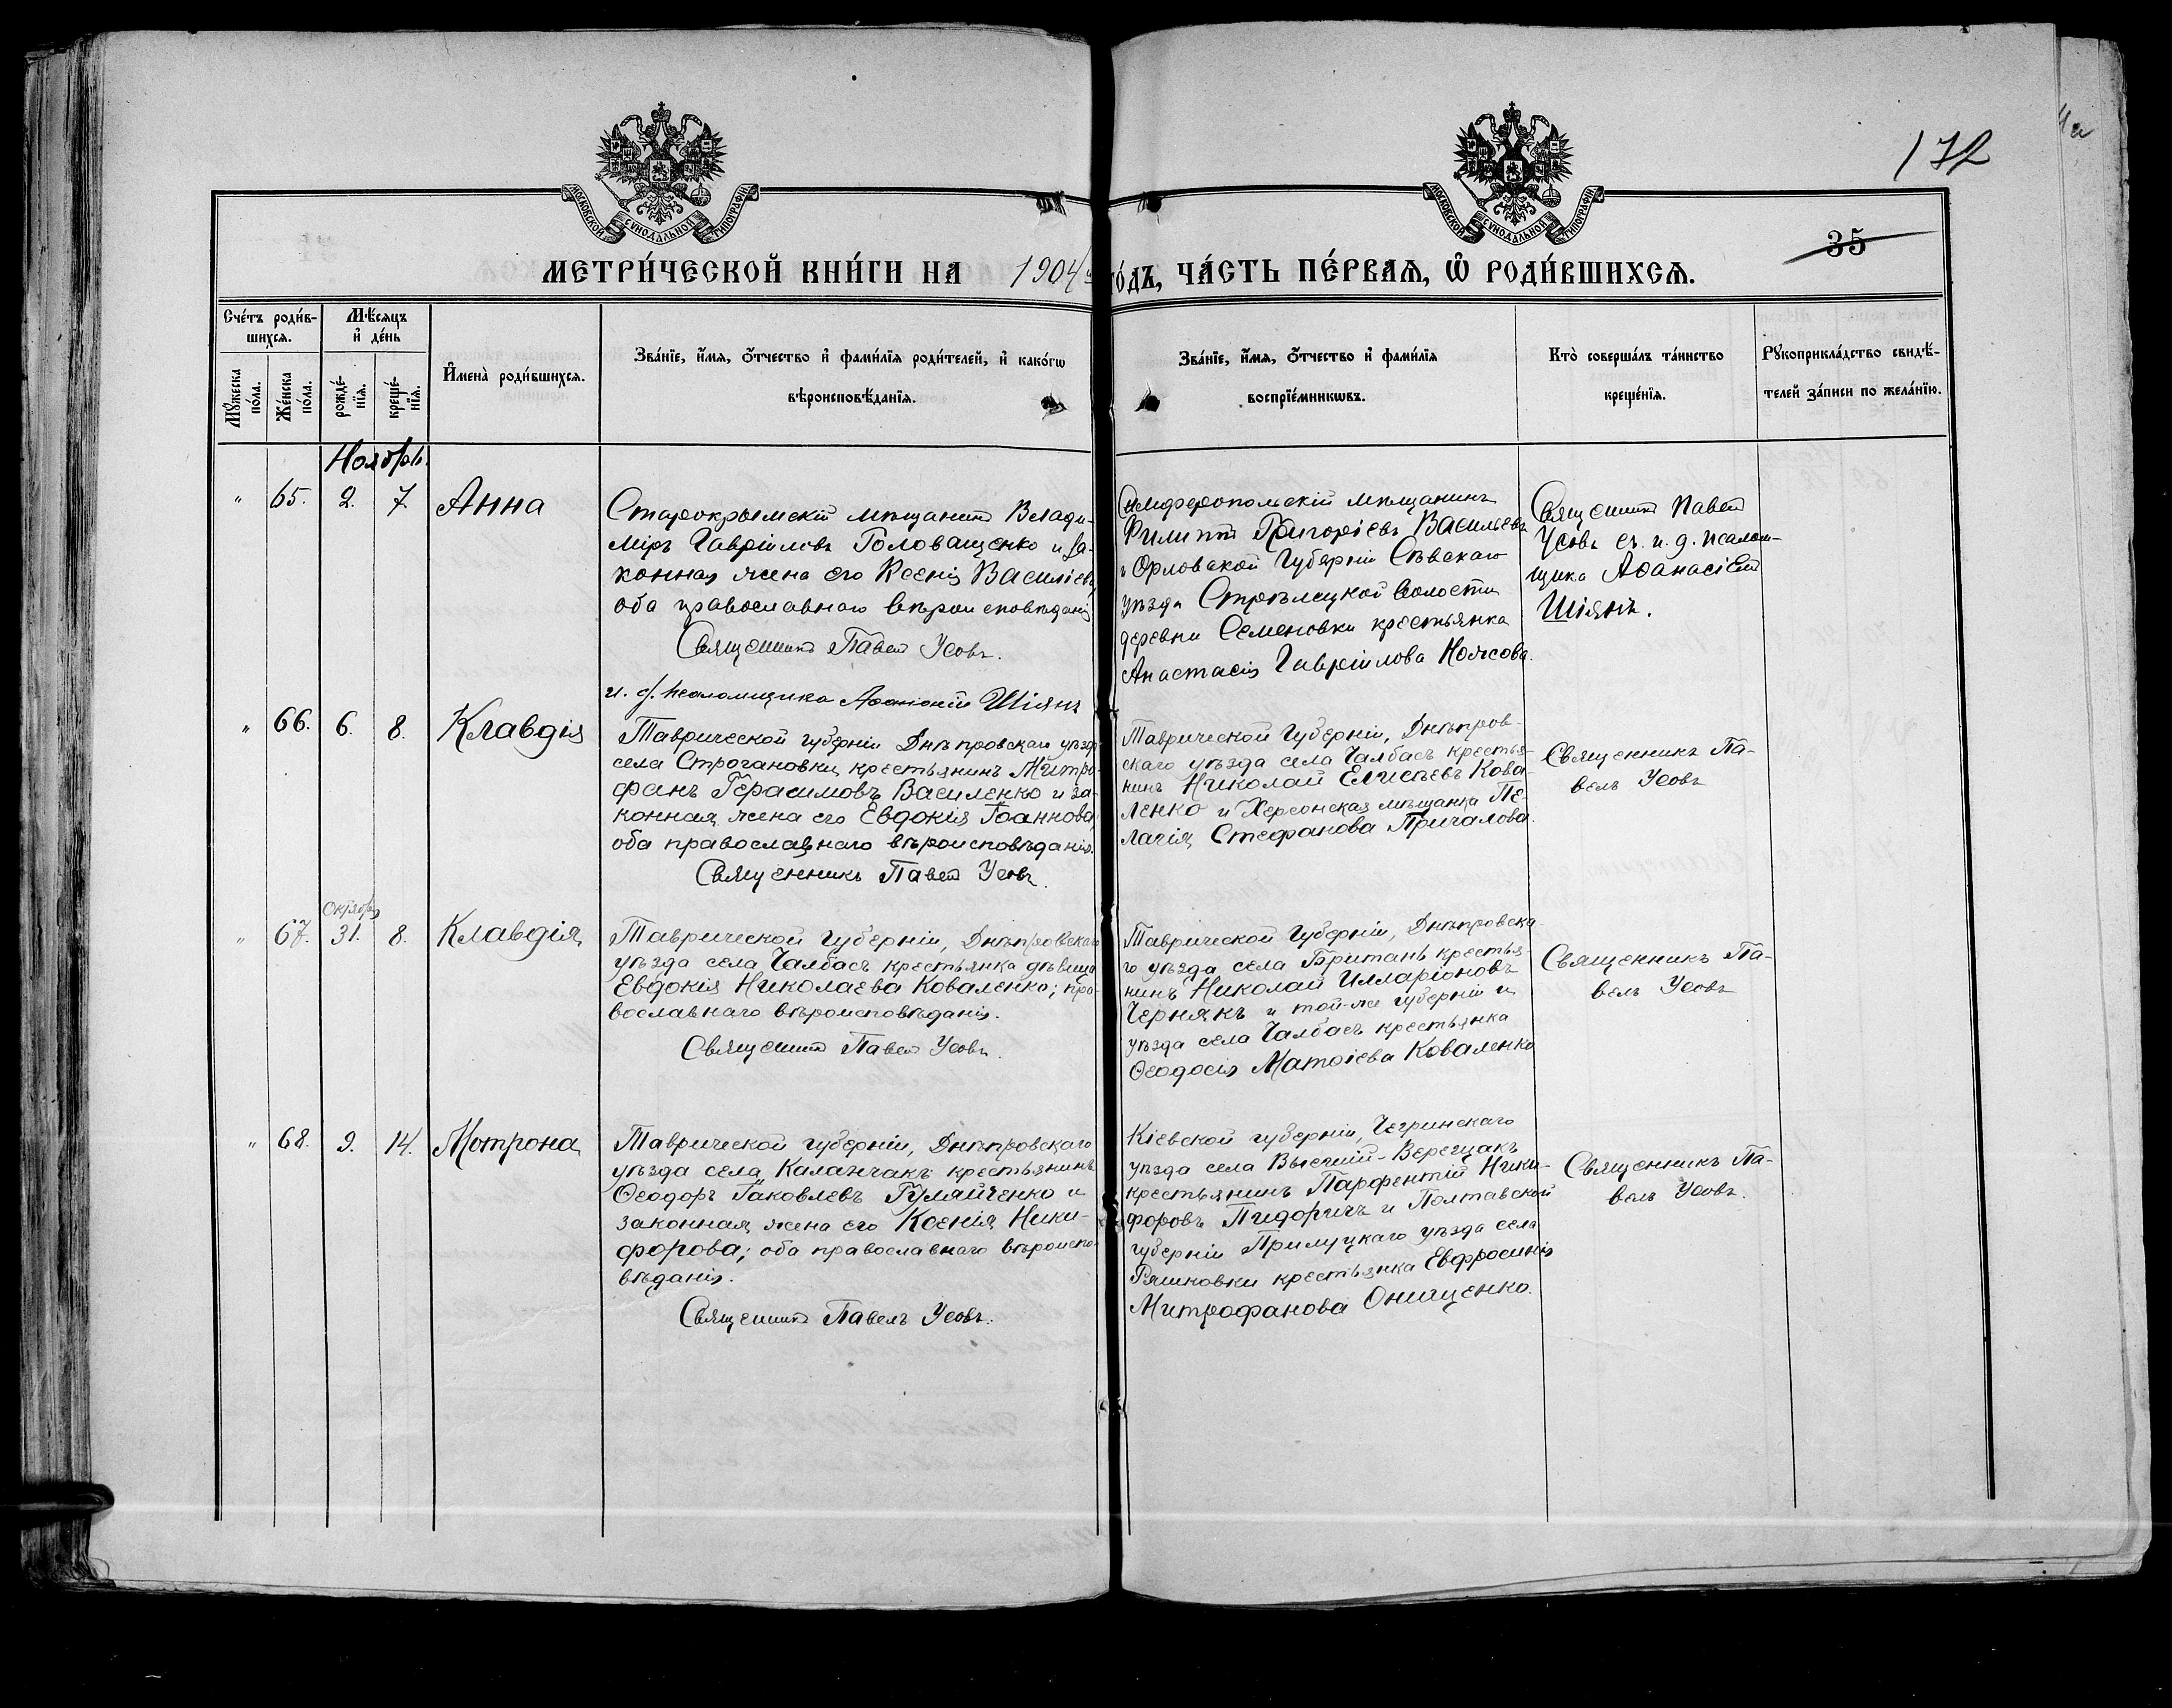 172
35
МОСКОВСКОЙ СѴНОДАЛЬНОЙ ТИПОГРАФІИ
МОСКОВСКОЙ СѴНОДАЛЬНОЙ ТИПОГРАФІИ
МЕТРИ́ЧЕСКОЙ КНИ́ГИ НА 1904 й
ГО́ДЪ, ЧА́СТЬ ПЕ́РВАѦ, Ѽ РОДИ́ВШИХСѦ.
Сче́тъ роди́в-
шихсѧ.
Мꙋ́жеска по́ла.
Же́нска по́ла.
Мѣ́сѧцъ
и҆ де́нь
рожде́-
нїѧ.
креще́-
нїѧ.
И҆мена̀ роди́вшихсѧ.
Зва́нїе, и҆́мѧ, ѻ҆́тчество и҆ фами́лїѧ роди́телей, и҆ како́гѡ
вѣроисповѣ́данїѧ.
Зва́нїе, и҆́мѧ, ѻ҆́тчество и҆ фами́лїѧ
воспрїе́мникѡвъ.
Кто̀ соверша́лъ та́инство
креще́нїѧ.
Рꙋкоприкла́дство свидѣ́-
телей за́писи по жела́нїю.
Ноябрь.
" 65. 2. 7 Анна
Старокрымскій мѣщанинъ Влади-
міръ Гавріиловъ Головащенко и за-
конная жена его Ксенія Василіева,
оба православнаго вѣроисповѣданія
Священникъ Павелъ Усовъ.
и. д. псаломщика Аѳанасій Шіянъ
Симферопольскій мѣщанинъ
Филиппъ Григоріевъ Васильевъ
и Орловской Губерніи Сѣвскаго
уѣзда Стрѣлецкой волости
деревни Семеновки крестьянка
Анастасія Гавріилова Носова.
Священникъ Павелъ
Усовъ съ и. д. псалом-
щика Аѳанасіемъ
Шіянъ.
" 66. 6. 8. Клавдія
Таврической губерніи Днѣпровскаго уѣзда
села Строгановки, крестьянинъ Митро-
фанъ Герасимовъ Василенко и за-
конная жена его Евдокія Іоаннова,
оба православнаго вѣроисповѣданія.
Священникъ Павелъ Усовъ.
Таврической Губерніи, Днѣпров-
скаго уѣзда села Чалбасъ крестья-
нинъ Николай Елисѣевъ Кова-
ленко и Херсонская мѣщанка Пе-
лагія Стефанова Причалова.
Священникъ Па-
велъ Усовъ
Октября
" 67. 31. 8. Клавдія
Таврической Губерніи, Днѣпровскаго
уѣзда села Чалбасъ крестьянка дѣвица
Евдокія Николаева Коваленко; пра-
вославнаго вѣроисповѣданія.
Священникъ Павелъ Усовъ.
Таврической Губерніи, Днѣпровска-
го уѣзда села Британь крестья-
нинъ Николай Илларіоновъ
Чернякъ и той-же губерніи и
уѣзда села Чалбасъ крестьянка
Ѳеодосія Матѳіева Коваленко
Священникъ Па-
велъ Усовъ
" 68. 9. 14. Мотрона
Таврической губерніи, Днѣпровскаго
уѣзда села Каланчакъ крестьянинъ
Ѳеодоръ Іаковлевъ Гуляйченко и
законная жена его Ксенія Ники-
форова; оба православнаго вѣроиспо-
вѣданія.
Священникъ Павелъ Усовъ.
Кіевской губерніи, Чегринскаго
уѣзда села Верещакъ
крестьянинъ Парфентій Ники-
форовъ Пидоричъ и Полтавской
губерніи Прилуцкаго уѣзда села
Ряшковки крестьянка Евфросинія
Митрофанова Онищенко.
Священникъ Па-
велъ Усовъ.